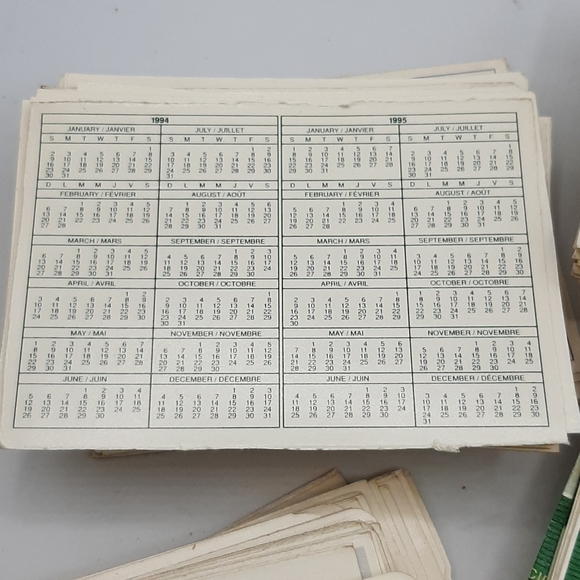 1994
JANUARY / JANVIER
S M T W T F S
1
2 3 4 5 6 7 8
9 10 11 12 13 14 15
16 17 18 19 20 21 22
23 24 25 26 27 28 29
30 31
D L M M J V S
FEBRUARY / FÉVRIER
1 2 3 4 5
6 7 8 9 10 11 12
13 14 15 16 17 18 19
20 21 22 23 24 25 26
27 28
MARCH / MARS
1 2 3 4 5
6 7 8 9 10 11 12
13 14 15 16 17 18 19
20 21 22 23 24 25 26
27 28 29 30 31
APRIL / AVRIL
1 2
3 4 5 6 7 8 9
10 11 12 13 14 15 16
17 18 19 20 21 22 23
24 25 26 27 28 29 30
MAY / MAI
1 2 3 4 5 6 7
8 9 10 11 12 13 14
15 16 17 18 19 20 21
22 23 24 25 26 27 28
29 30 31
JUNE / JUIN
1 2 3 4
5 6 7 8 9 10 11
12 13 14 15 16 17 18
19 20 21 22 23 24 25
26 27 28 29 30
JULY / JUILLET
S M T W T F S
1 2
3 4 5 6 7 8 9
10 11 12 13 14 15 16
17 18 19 20 21 22 23
24 25 26 27 28 29 30
31
D L M M J V S
AUGUST / AOÛT
1 2 3 4 5 6
7 8 9 10 11 12 13
14 15 16 17 18 19 20
21 22 23 24 25 26 27
28 29 30 31
SEPTEMBER / SEPTEMBRE
1 2 3
4 5 6 7 8 9 10
11 12 13 14 15 16 17
18 19 20 21 22 23 24
25 26 27 28 29 30
OCTOBER / OCTOBRE
1
2 3 4 5 6 7 8
9 10 11 12 13 14 15
16 17 18 19 20 21 22
23 24 25 26 27 28 29
30 31
NOVEMBER / NOVEMBRE
1 2 3 4 5
6 7 8 9 10 11 12
13 14 15 16 17 18 19
20 21 22 23 24 25 26
27 28 29 30
DECEMBER / DÉCEMBRE
1 2 3
4 5 6 7 8 9 10
11 12 13 14 15 16 17
18 19 20 21 22 23 24
25 26 27 28 29 30 31
1995
JANUARY / JANVIER
S M T W T F S
1 2 3 4 5 6 7
8 9 10 11 12 13 14
15 16 17 18 19 20 21
22 23 24 25 26 27 28
29 30 31
D L M M J V S
FEBRUARY / FÉVRIER
1 2 3 4
5 6 7 8 9 10 11
12 13 14 15 16 17 18
19 20 21 22 23 24 25
26 27 28
MARCH / MARS
1 2 3 4
5 6 7 8 9 10 11
12 13 14 15 16 17 18
19 20 21 22 23 24 25
26 27 28 29 30 31
APRIL / AVRIL
1
2 3 4 5 6 7 8
9 10 11 12 13 14 15
16 17 18 19 20 21 22
23 24 25 26 27 28 29
30
MAY / MAI
1 2 3 4 5 6
7 8 9 10 11 12 13
14 15 16 17 18 19 20
21 22 23 24 25 26 27
28 29 30 31
JUNE / JUIN
1 2 3
4 5 6 7 8 9 10
11 12 13 14 15 16 17
18 19 20 21 22 23 24
25 26 27 28 29 30
JULY / JUILLET
S M T W T F S
1
2 3 4 5 6 7 8
9 10 11 12 13 14 15
16 17 18 19 20 21 22
23 24 25 26 27 28 29
30 31
D L M M J V S
AUGUST / AOÛT
1 2 3 4 5
6 7 8 9 10 11 12
13 14 15 16 17 18 19
20 21 22 23 24 25 26
27 28 29 30 31
SEPTEMBER / SEPTEMBRE
1 2
3 4 5 6 7 8 9
10 11 12 13 14 15 16
17 18 19 20 21 22 23
24 25 26 27 28 29 30
OCTOBER / OCTOBRE
1 2 3 4 5 6 7
8 9 10 11 12 13 14
15 16 17 18 19 20 21
22 23 24 25 26 27 28
29 30 31
NOVEMBER / NOVEMBRE
1 2 3 4
5 6 7 8 9 10 11
12 13 14 15 16 17 18
19 20 21 22 23 24 25
26 27 28 29 30
DECEMBER / DÉCEMBRE
1 2
3 4 5 6 7 8 9
10 11 12 13 14 15 16
17 18 19 20 21 22 23
24 25 26 27 28 29 30
31